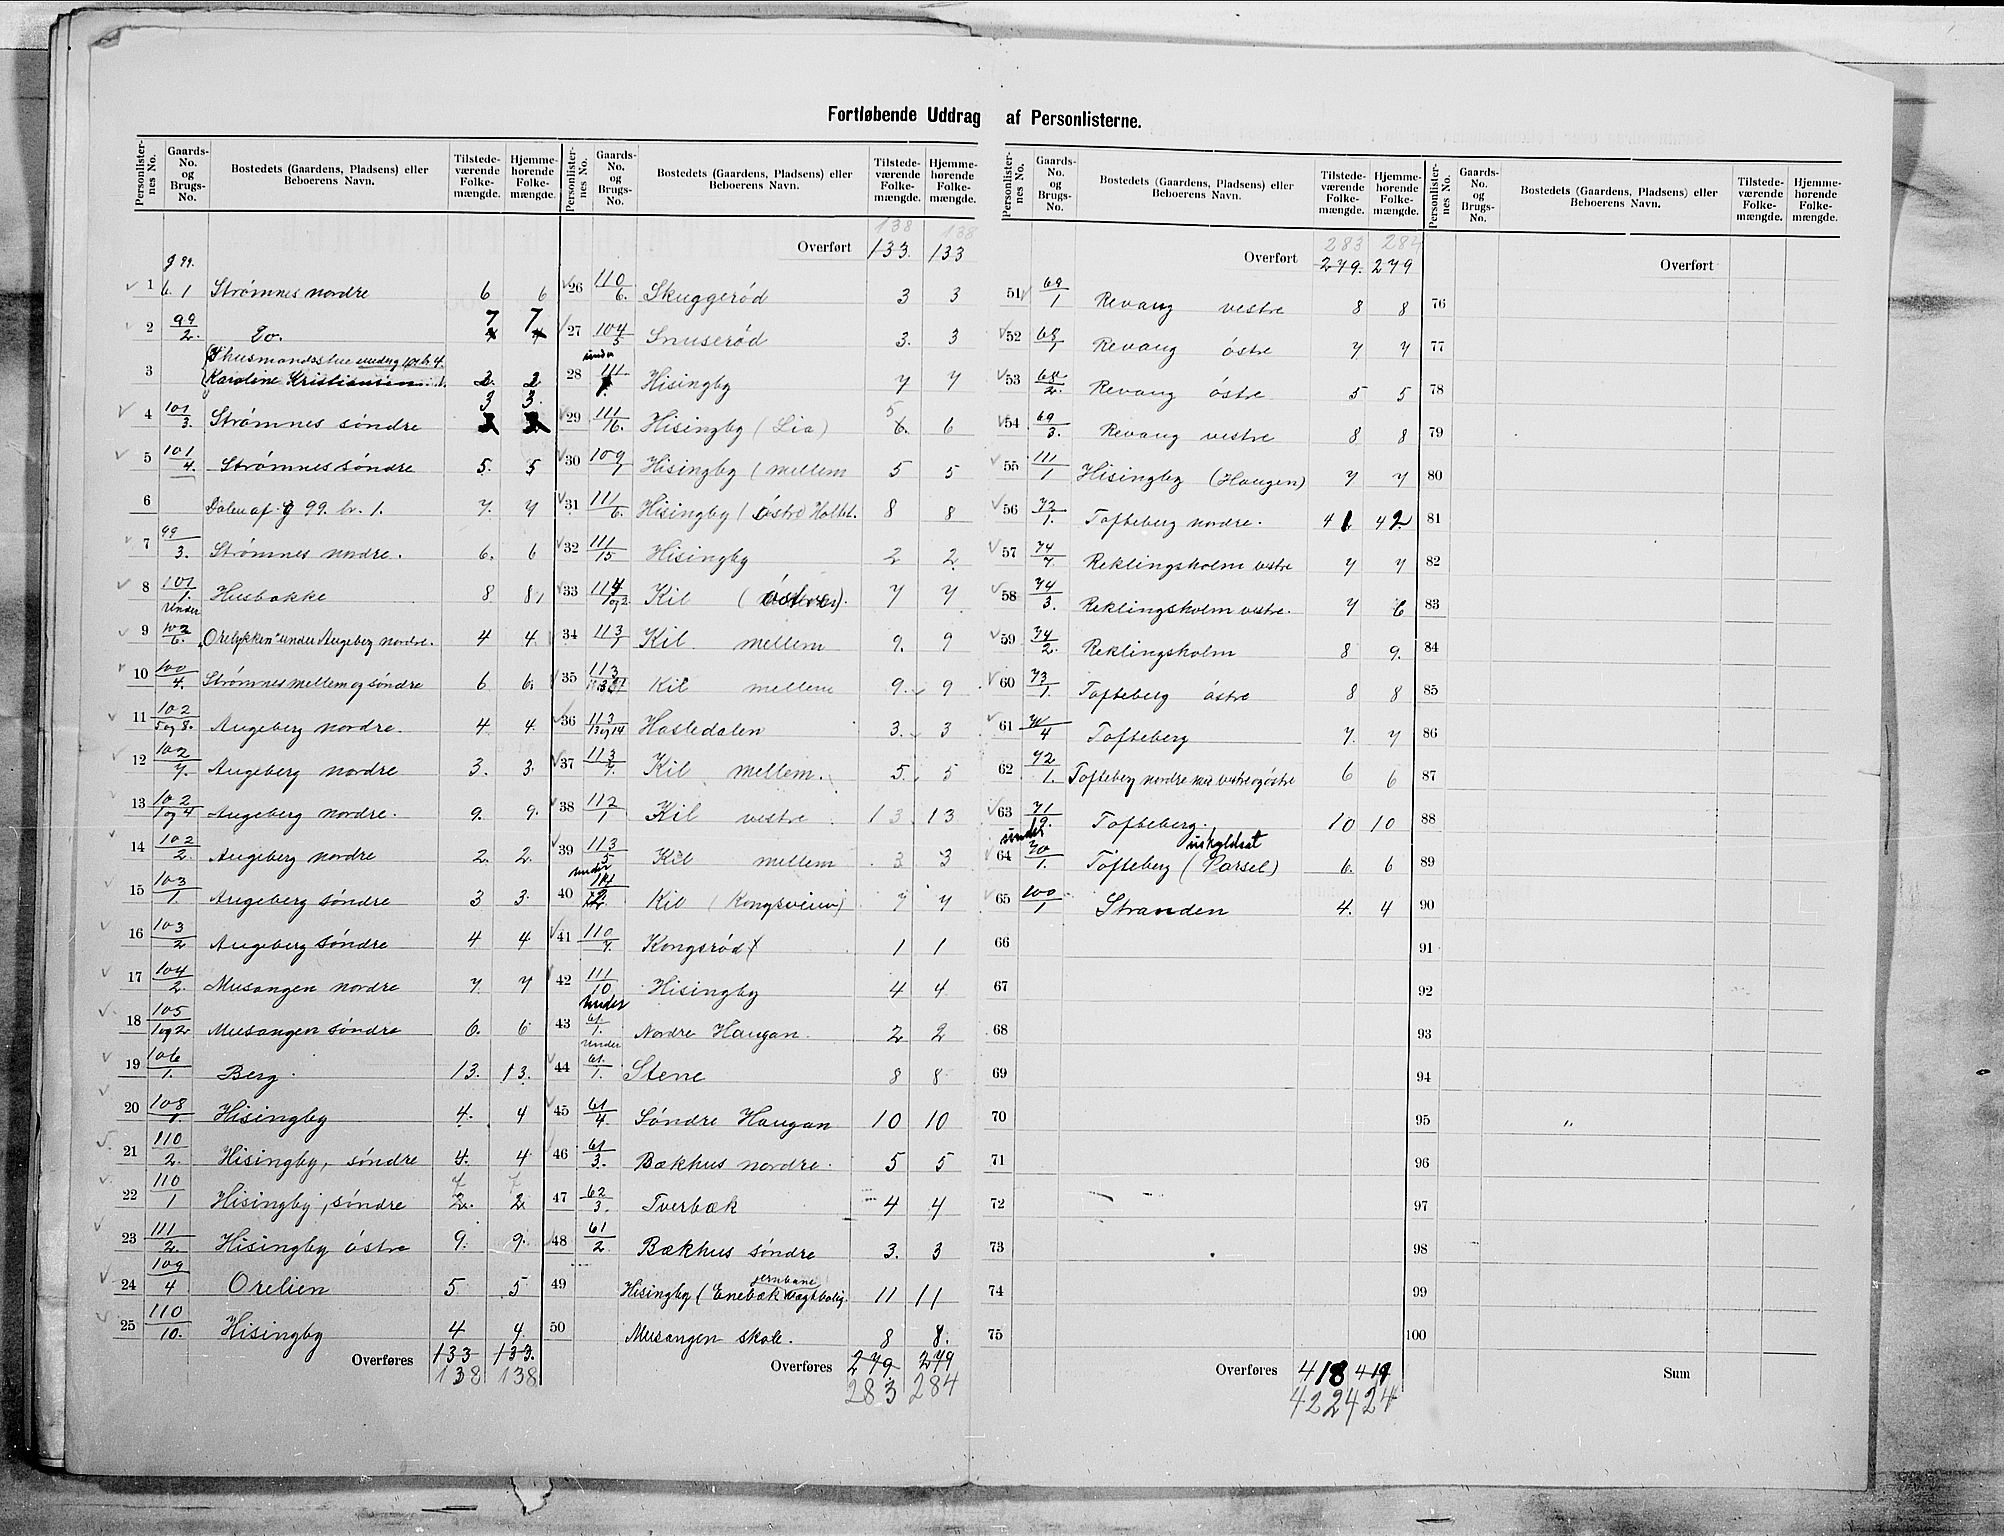 Fortløbende Uddrag af Personlisterne.
Personlister-nes No. Gaards-No. og Brugs-No. Bostedets (Gaardens, Pladsens) eller Beboerens Navn. Tilstede-værende Folke-mængde. Hjemme-hørende Folke-mængde.
g 99.
1 b. 1 Strømnes nordre 6 6
2 99/2. Do. 7 7
3 husmandsstue under g 101 b. 4. Karoline Kristiansen 2. 2
4 101/3. Strømnes søndre 3 3.
5 101/4. Strømnes søndre 5. 5
6 Dalen af g 99. br. 1. 7. 7
7 99/3. Strømnes nordre. 6. 6
8 101/1. Husbakke 8 8,
9 Under 102/6. "Oreløkken" under Augeberg nordre. 4 4.
10 100/4. Strømnes mellem og søndre 6 6.
11 102/5 og 8. Augeberg nordre. 4 4.
12 102/7. Augeberg nordre 3. 3.
13 102/1 og 4 Augeberg nordre. 9. 9.
14 102/2. Augeberg nordre 2. 2.
15 103/1. Augeberg søndre 3 3.
16 103/2 Augeberg søndre 4 4
17 104/2. Musangen nordre 7. 7
18 105/1 og 2. Musangen søndre 6. 6
19 106/1. Berg. 13. 13.
20 108/1. Hisingby 4. 4
21 110/2. Hisingby, søndre 4. 4
22 110/1 Hisingby, søndre 2. 2
23 111/2. Hisingby østre 9. 9.
24 109/4 Orelien 5 5
25 110/10. Hisingby 4 4.
Overføres 133 133.
138 138
Personlister-nes No. Gaards-No. og Brugs-No. Bostedets (Gaardens, Pladsens) eller Beboerens Navn. Tilstede-værende Folke-mængde. Hjemme-hørende Folke-mængde.
138 138
Overført 133. 133
26 110/6. Skuggerød 3 3
27 104/5 Snuserød 3. 3
28 under 111/1. Hisingby 7 7
29 111/16. Hisingby (Lia) 5 6. 6
30 109/1 Hisingby (mellem 5 5
31 111/6. Hisingby (østre Holbt. 8 8
32 111/15 Hisingby 2 2.
33 114/1 og 2. Kil (østre). 7 7
34 113/1 Kil mellem 9. 9
35 113 Kil mellem 9. 9
36 113/13 og 14 Hasledalen 3. 3
37 113/7. Kil mellem. 5. 5
38 112/1 Kil vestre 13 13
39 113/5 Kil mellem 3 3
40 under Kil (Kongsveien) 7 7
41 110/7. Kongsrød 1 1
42 111/10 Hisingby 4 4
43 under 61/1. Nordre Haugan. 2 2
44 under 61/1. Stene 8 8
45 61/4. Søndre Haugan 10 10
46 61/3. Bækhus nordre. 5 5
47 62/3. Tverbæk 4 4
48 61/2. Bækhus søndre 3. 3
49 Hisingby (Enebæk jernbane vagtbolig. 11 11
50 Musangen skole. 8 8.
Overføres 279. 279
283 284
Personlister-nes No. Gaards-No. og Brugs-No. Bostedets (Gaardens, Pladsens) eller Beboerens Navn. Tilstede-værende Folke-mængde. Hjemme-hørende Folke-mængde.
283 284
Overført 279. 279
51 69/1 Revaug vestre 8 8
52 68/1 Revaug østre 7 7
53 68/2. Revaug østre 5 5
54 69/3. Revaug vestre 8 8
55 111/1 Hisingby (Haugen) 7 7
56 72/1. Tofteberg nordre. 41 42
57 74/7. Reklingsholm vestre 7 7
58 74/3. Reklingsholm vestre. 7 6
59 74/2. Reklingsholm 8 9.
60 73/1. Tofteberg østre 8 8
61 71/4 Tofteberg 7. 7
62 72/1. Tofteberg nordre med vestre og østre 6 6
63 71/19. Tofteberg. 10 10
64 under 70/1. Tofteberg (uskyldsat Parsel) 6. 6
65 100/1 Stranden 4. 4
66
67
68
69
70
71
72
73
74
75
Overføres 418 419
422 424
Personlister-nes No. Gaards-No. og Brugs-No. Bostedets (Gaardens, Pladsens) eller Beboerens Navn. Tilstede-værende Folke-mængde. Hjemme-hørende Folke-mængde.
Overført
76
77
78
79
80
81
82
83
84
85
86
87
88
89
90
91
92
93
94
95 "
96
97
98
99
100
Sum